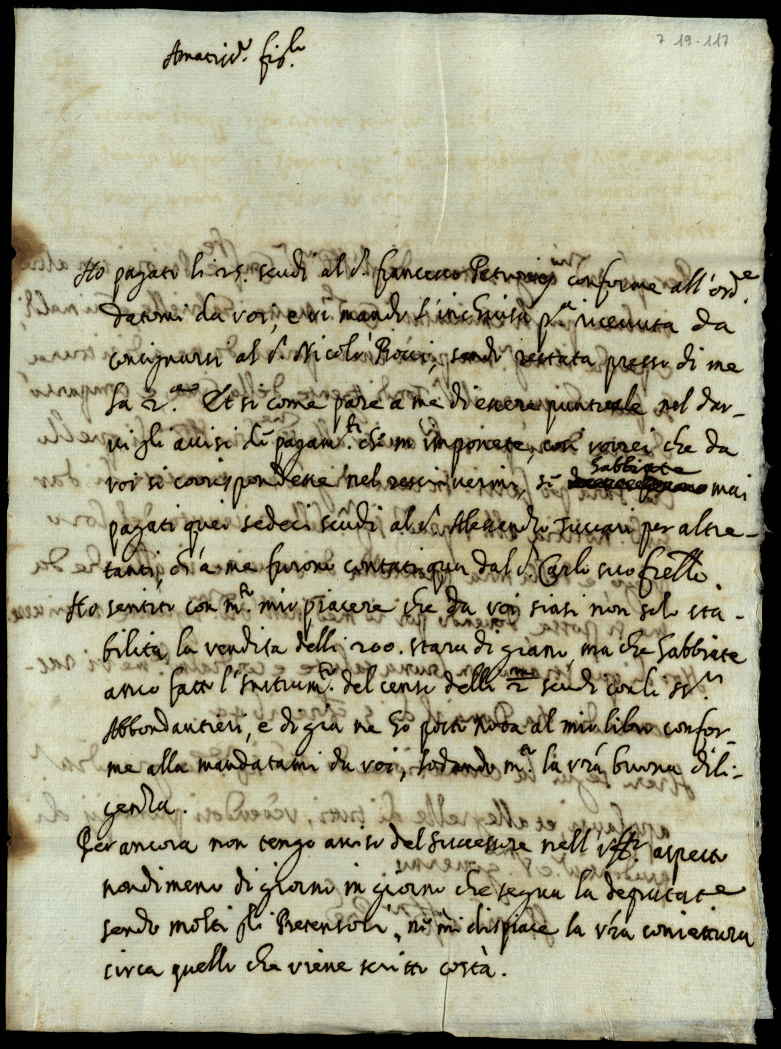 7 19-117
Amatiss.º fig.lo
Ho pagati li 25. scudi al S.r francesco Petrucci conforme all'ord.e
datomi da voi, e vi mando l'inchiusa p.a ricevuta da
consignarsi al S.r Nicolò Bocci, sendo restata presso di me
la 2.a Et si come pare a me di essere puntuale nel dar-
vi gli avisi di pagam.ti ch' m'imponete, così vorrei che da
voi si corrispondesse nel rescrivermi, se habbiate mai
pagati quei sedeci scudi al S.r Alessandro Tuccari per altre-
tanti, ch' a me furono contati qua dal S.r Carlo suo frello
Ho sentito con m.o mio piacere che da voi siasi non solo sta-
bilita la vendita delli 200. stara di grano, ma che habbiate
anco fatto l'Instrum.to del censo delli 2 m scudi con li SS.ri
Abbondantieri, e di già ne ho posto nota al mio libro confor-
me alla mandatami da voi, lodando m.o la vra buona dili-
genza.
Per ancora non tengo aviso del successore nell' aspetto
nondimeno di giorno in giorno che segua la deputat.e
sendo molti gli Pretensori, nè mi dispiace la vra coniettura
circa quello che viene scritto costà.